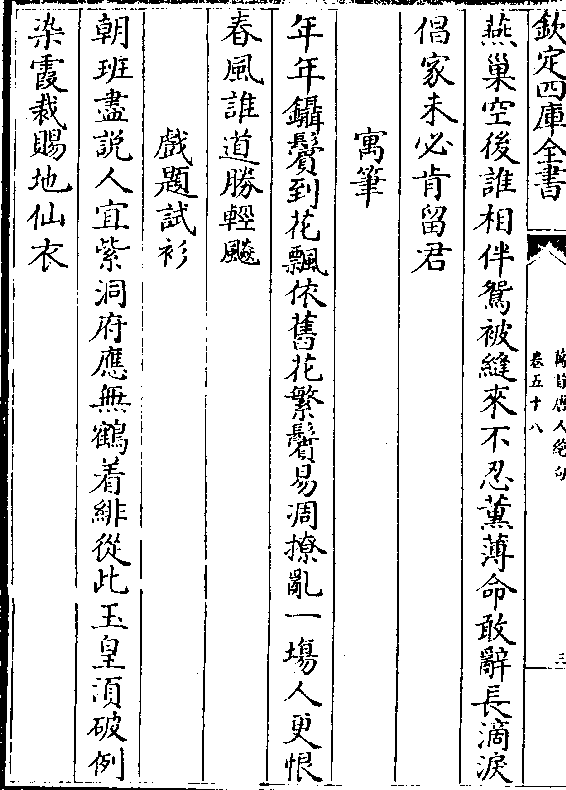 欽定四庫全書
萬首唐人絶句
卷五十八
三
燕巢空後誰相伴鴛被縫來不忍薰薄命敢辭長滴淚
倡家未必肯留君
寓筆
年年鑷鬢到花飄依舊花繁鬢易凋撩亂一塲人更恨
春風誰道勝輕颷
戲題試衫
朝班盡説人宜紫洞府應無鶴着緋從此玉皇湏破例
染霞裁賜地仙衣